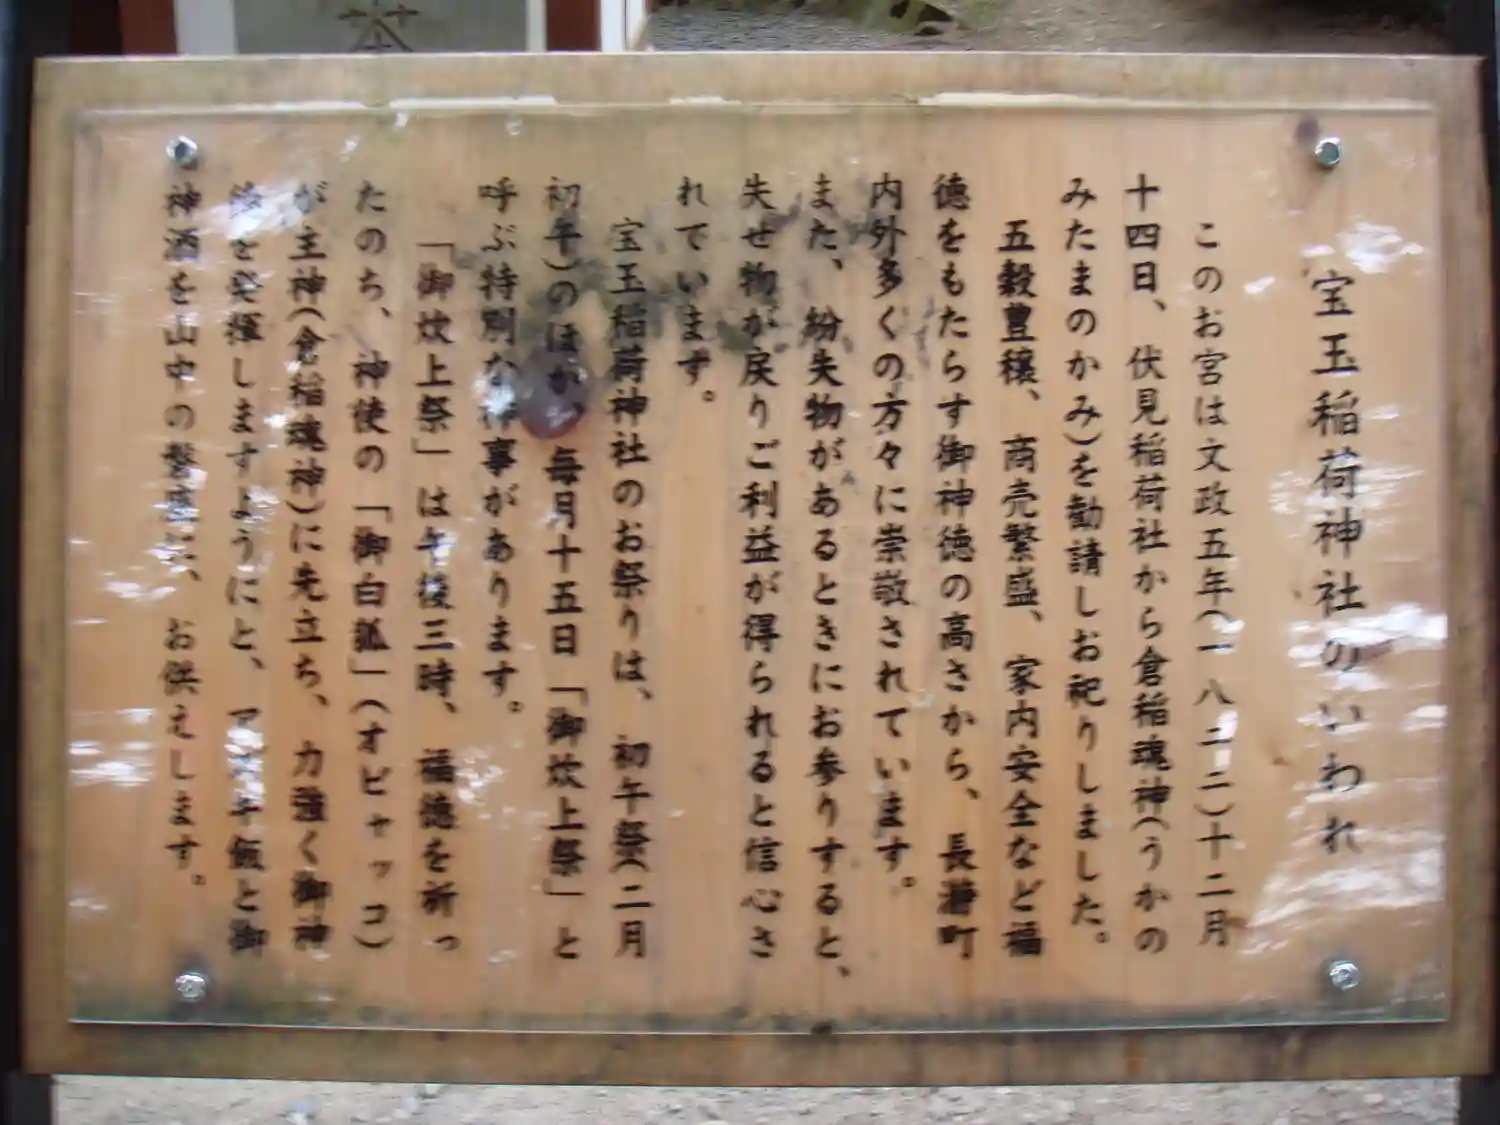 茶
宝玉稲荷神社のいわれ
このお宮は文政五年(一八二二)十二月
十四日、伏見稲荷社から倉稲魂神(うかの
みたまのかみ)を勧請しお祀りしました。
五穀豊穣、商売繁盛、家内安全など福
徳をもたらす御神徳の高さから、長瀞町
内外多くの方々に崇敬されています。
また、紛失物があるときにお参りすると、
失せ物が戻りご利益が得られると信心さ
れています。
宝玉稲荷神社のお祭りは、初午祭(二月
初午)のほか毎月十五日「御炊上祭」と
呼ぶ特別な神事があります。
「御炊上祭」は午後三時、福徳を祈っ
たのち、神使の「御白狐」(オビャッコ)
が主神(倉稲魂神)に先立ち、力強く御神
徳を発揮しますようにと、アズキ飯と御
神酒を山中の磐座に、お供えします。